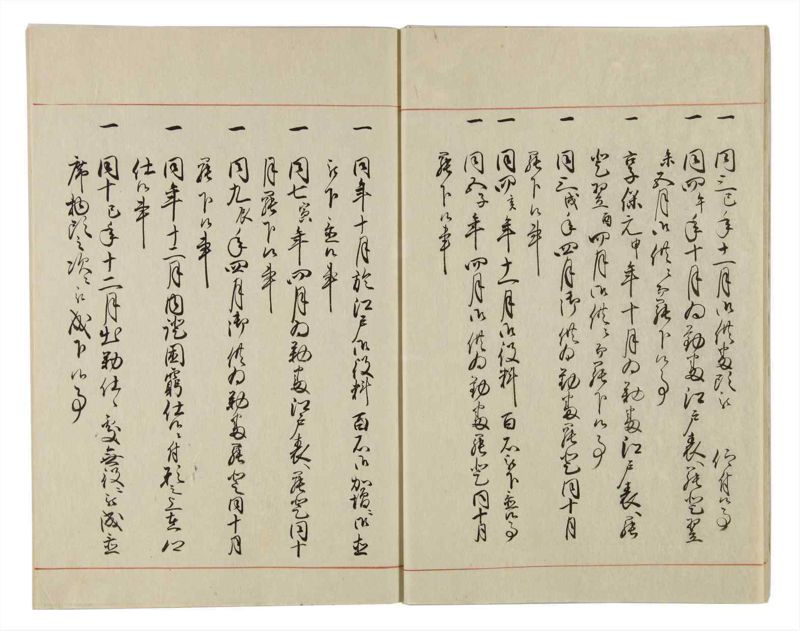 一 同三巳年十一月御供番頭被 仰付候事
一 同四午年十月為勤番江戸表へ罷登翌
未五月御供ニ而罷下候事
一 享保元申年十月為勤番江戸表へ罷
登翌酉四月御供ニ而罷下候事
一 同三戌年四月御供為勤番罷登同十月
罷下候事
一 同四亥年十一月御役料百石被下置候事
一 同五子年四月御供為勤番罷登同十月
罷下候事
一 同年十月於江戸御役料百石御加増御直
被下置候事
一 同七寅年四月為勤番江戸表へ罷登同十
月罷下候事
一 同九辰年四月御供為勤番罷登同十月
罷下候事
一 同年十二月内証困窮仕候ニ付
仕候事
一 同十巳年十二月出勤仕候処無役ニ被成置
席物頭之次ニ被成下候事